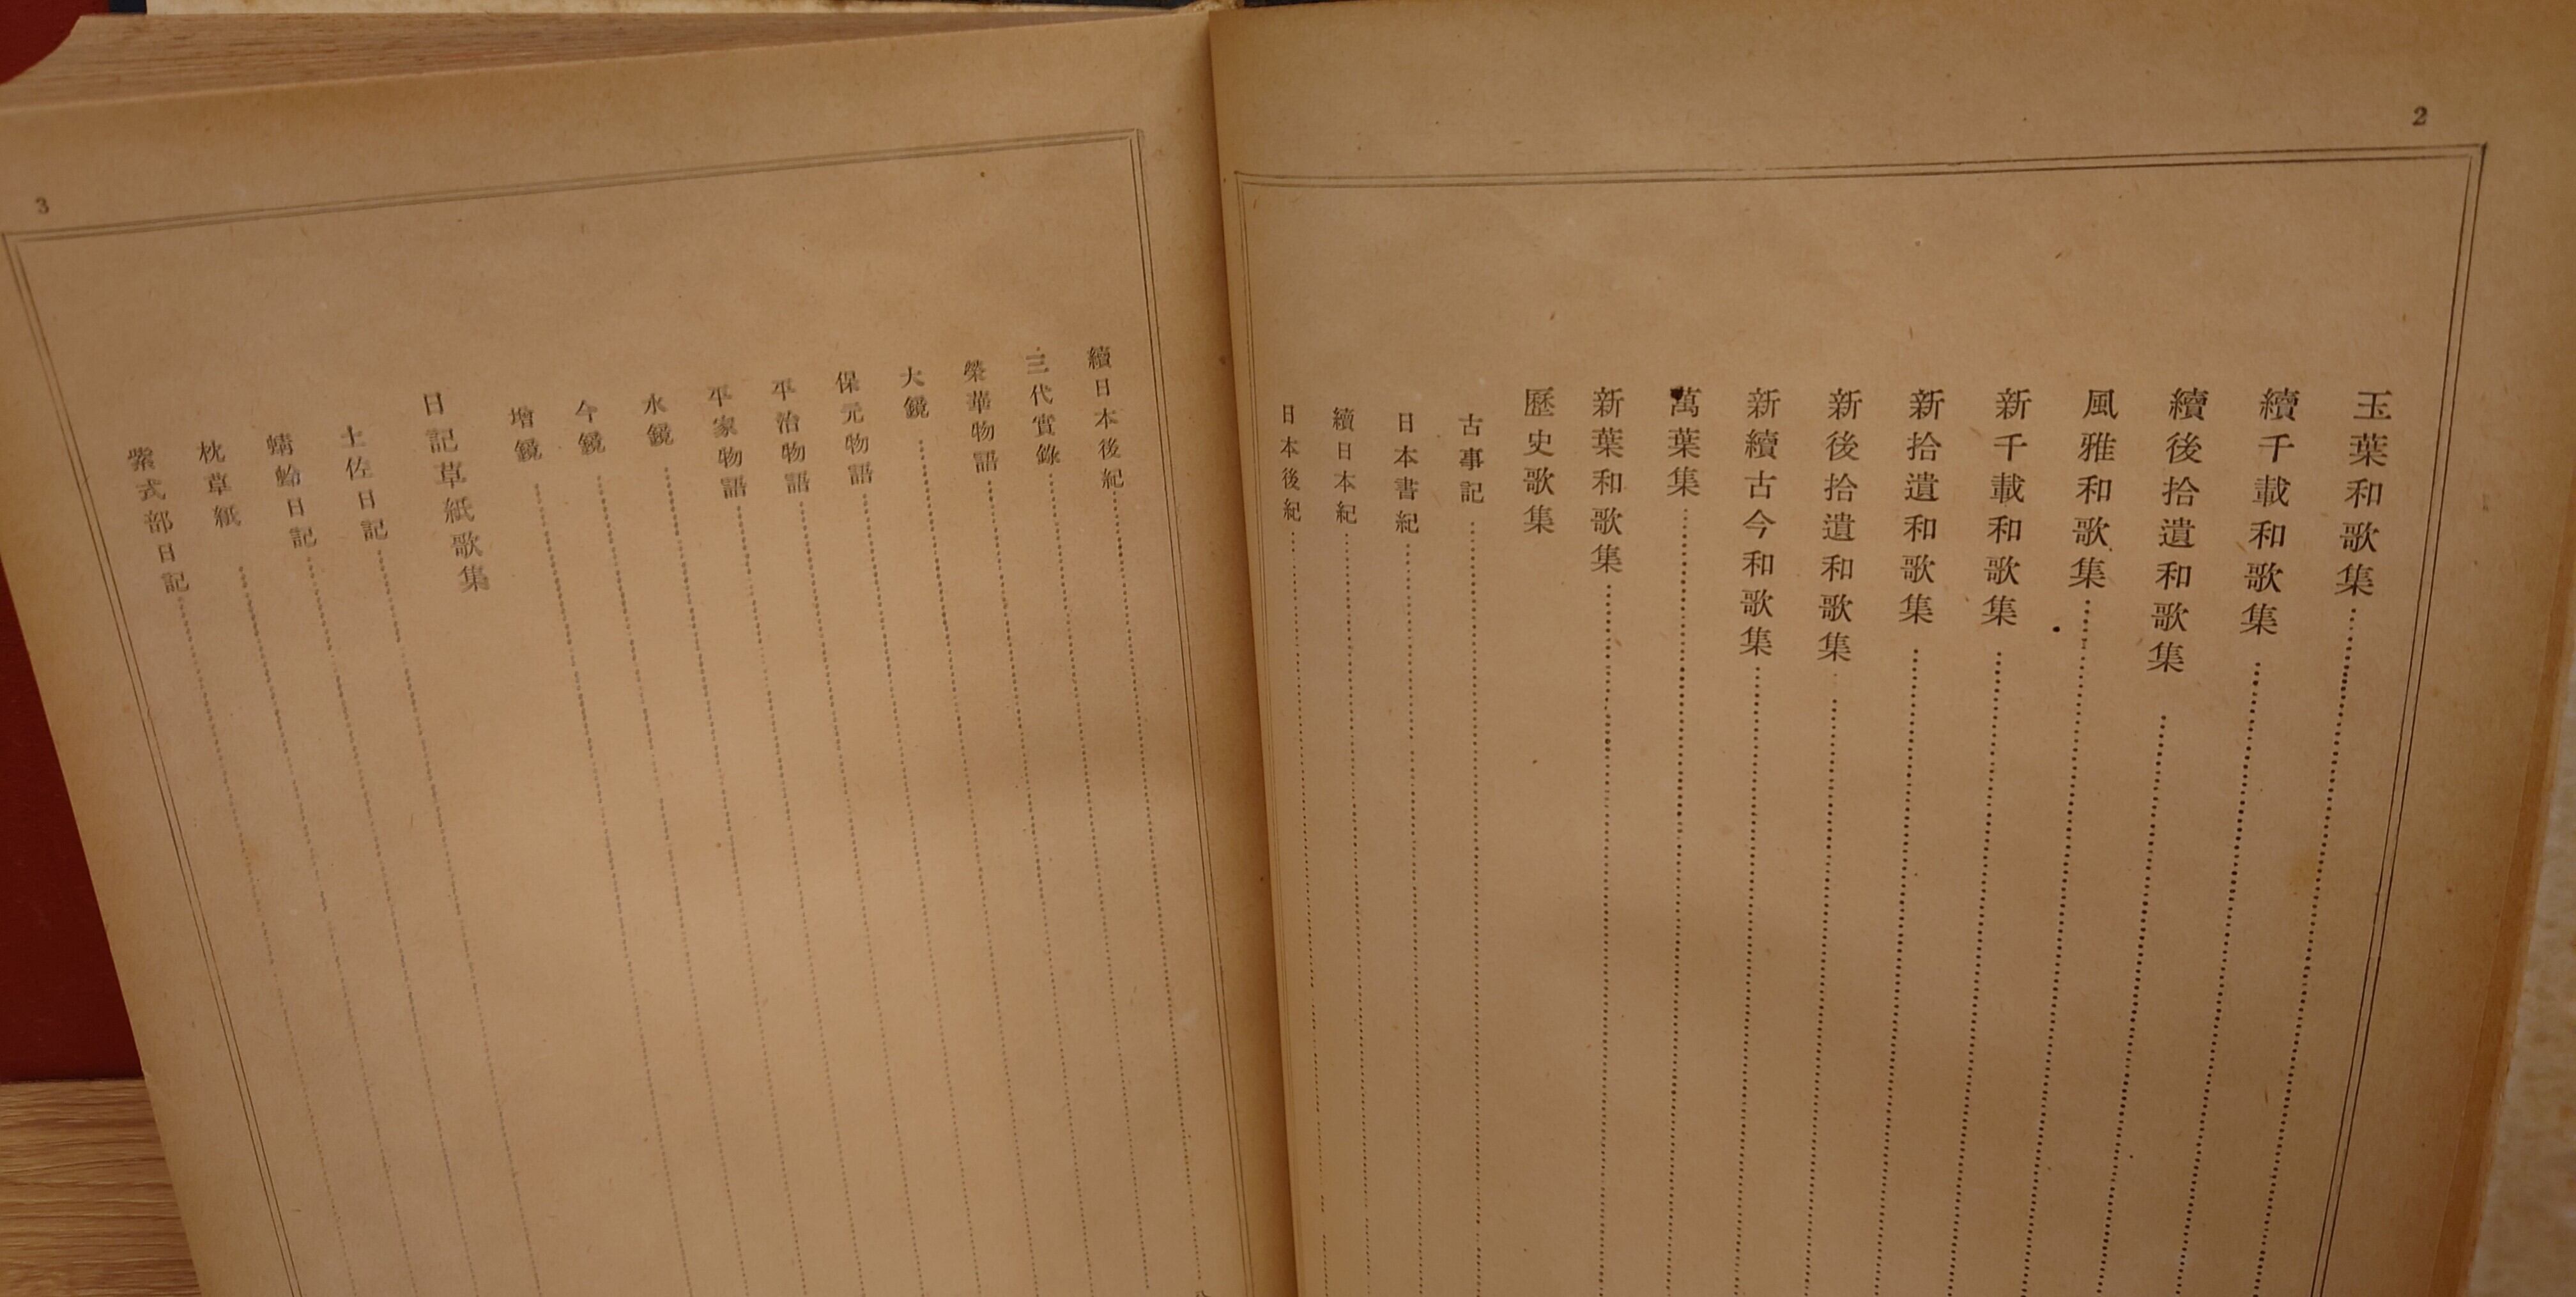 2
玉葉和歌集
續千載和歌集
續後拾遺和歌集
風雅和歌集
新千載和歌集
新拾遺和歌集
新後拾遺和歌集
新續古今和歌集
萬葉集
新葉和歌集
歷史歌集
古事記
日本書紀
續日本紀
日本後紀
3
續日本後紀
三代實錄
榮華物語
大鏡
保元物語
平治物語
平家物語
水鏡
今鏡
增鏡
日記草紙歌集
土佐日記
蜻蛉日記
枕草紙
紫式部日記